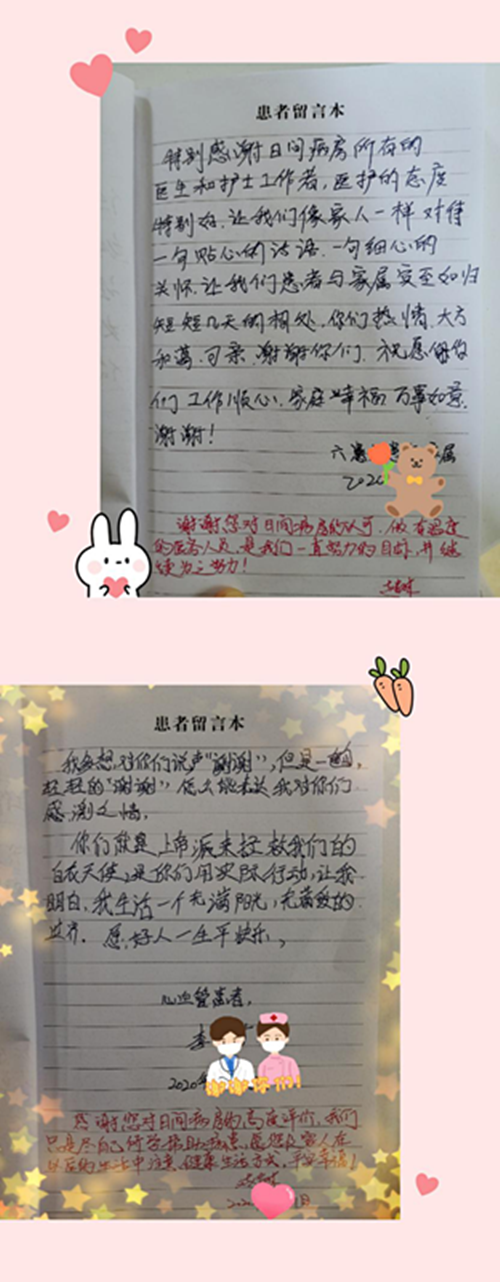 患者留言本
特别感谢日间病房所有的
医生和护士工作者,医护的态度
特别好.让我们像家人一样对待
一句贴心的话语.一句细心的
关怀.让我们患者与家属宾至如归
短短几天的相处.你们热情.大方
和蔼.可亲.谢谢你们.祝愿
们工作顺心.家庭幸福.万事如意.
谢谢!
2020
谢谢您对日间病房的认可.做有温度
的医务人员是我们一直努力的目标,并继
续为之努力!
患者留言本
我多想,对你们说声"谢谢",但是一句
轻轻的"谢谢",怎么能表达我对你们
感谢之情.
你们就是上帝派来拯救我们的
白衣天使,是你们用实际行动,让我
明白.我生活一个充满阳光,充满爱的
世界.愿,好人一生平快乐,
心血管患者,
李
2020年
谢谢你们
感谢您对日间病房的高度评价,我们
只是尽自己所学帮助病患,愿您及家人在
的生活中注意健康生活方式,平安幸福!